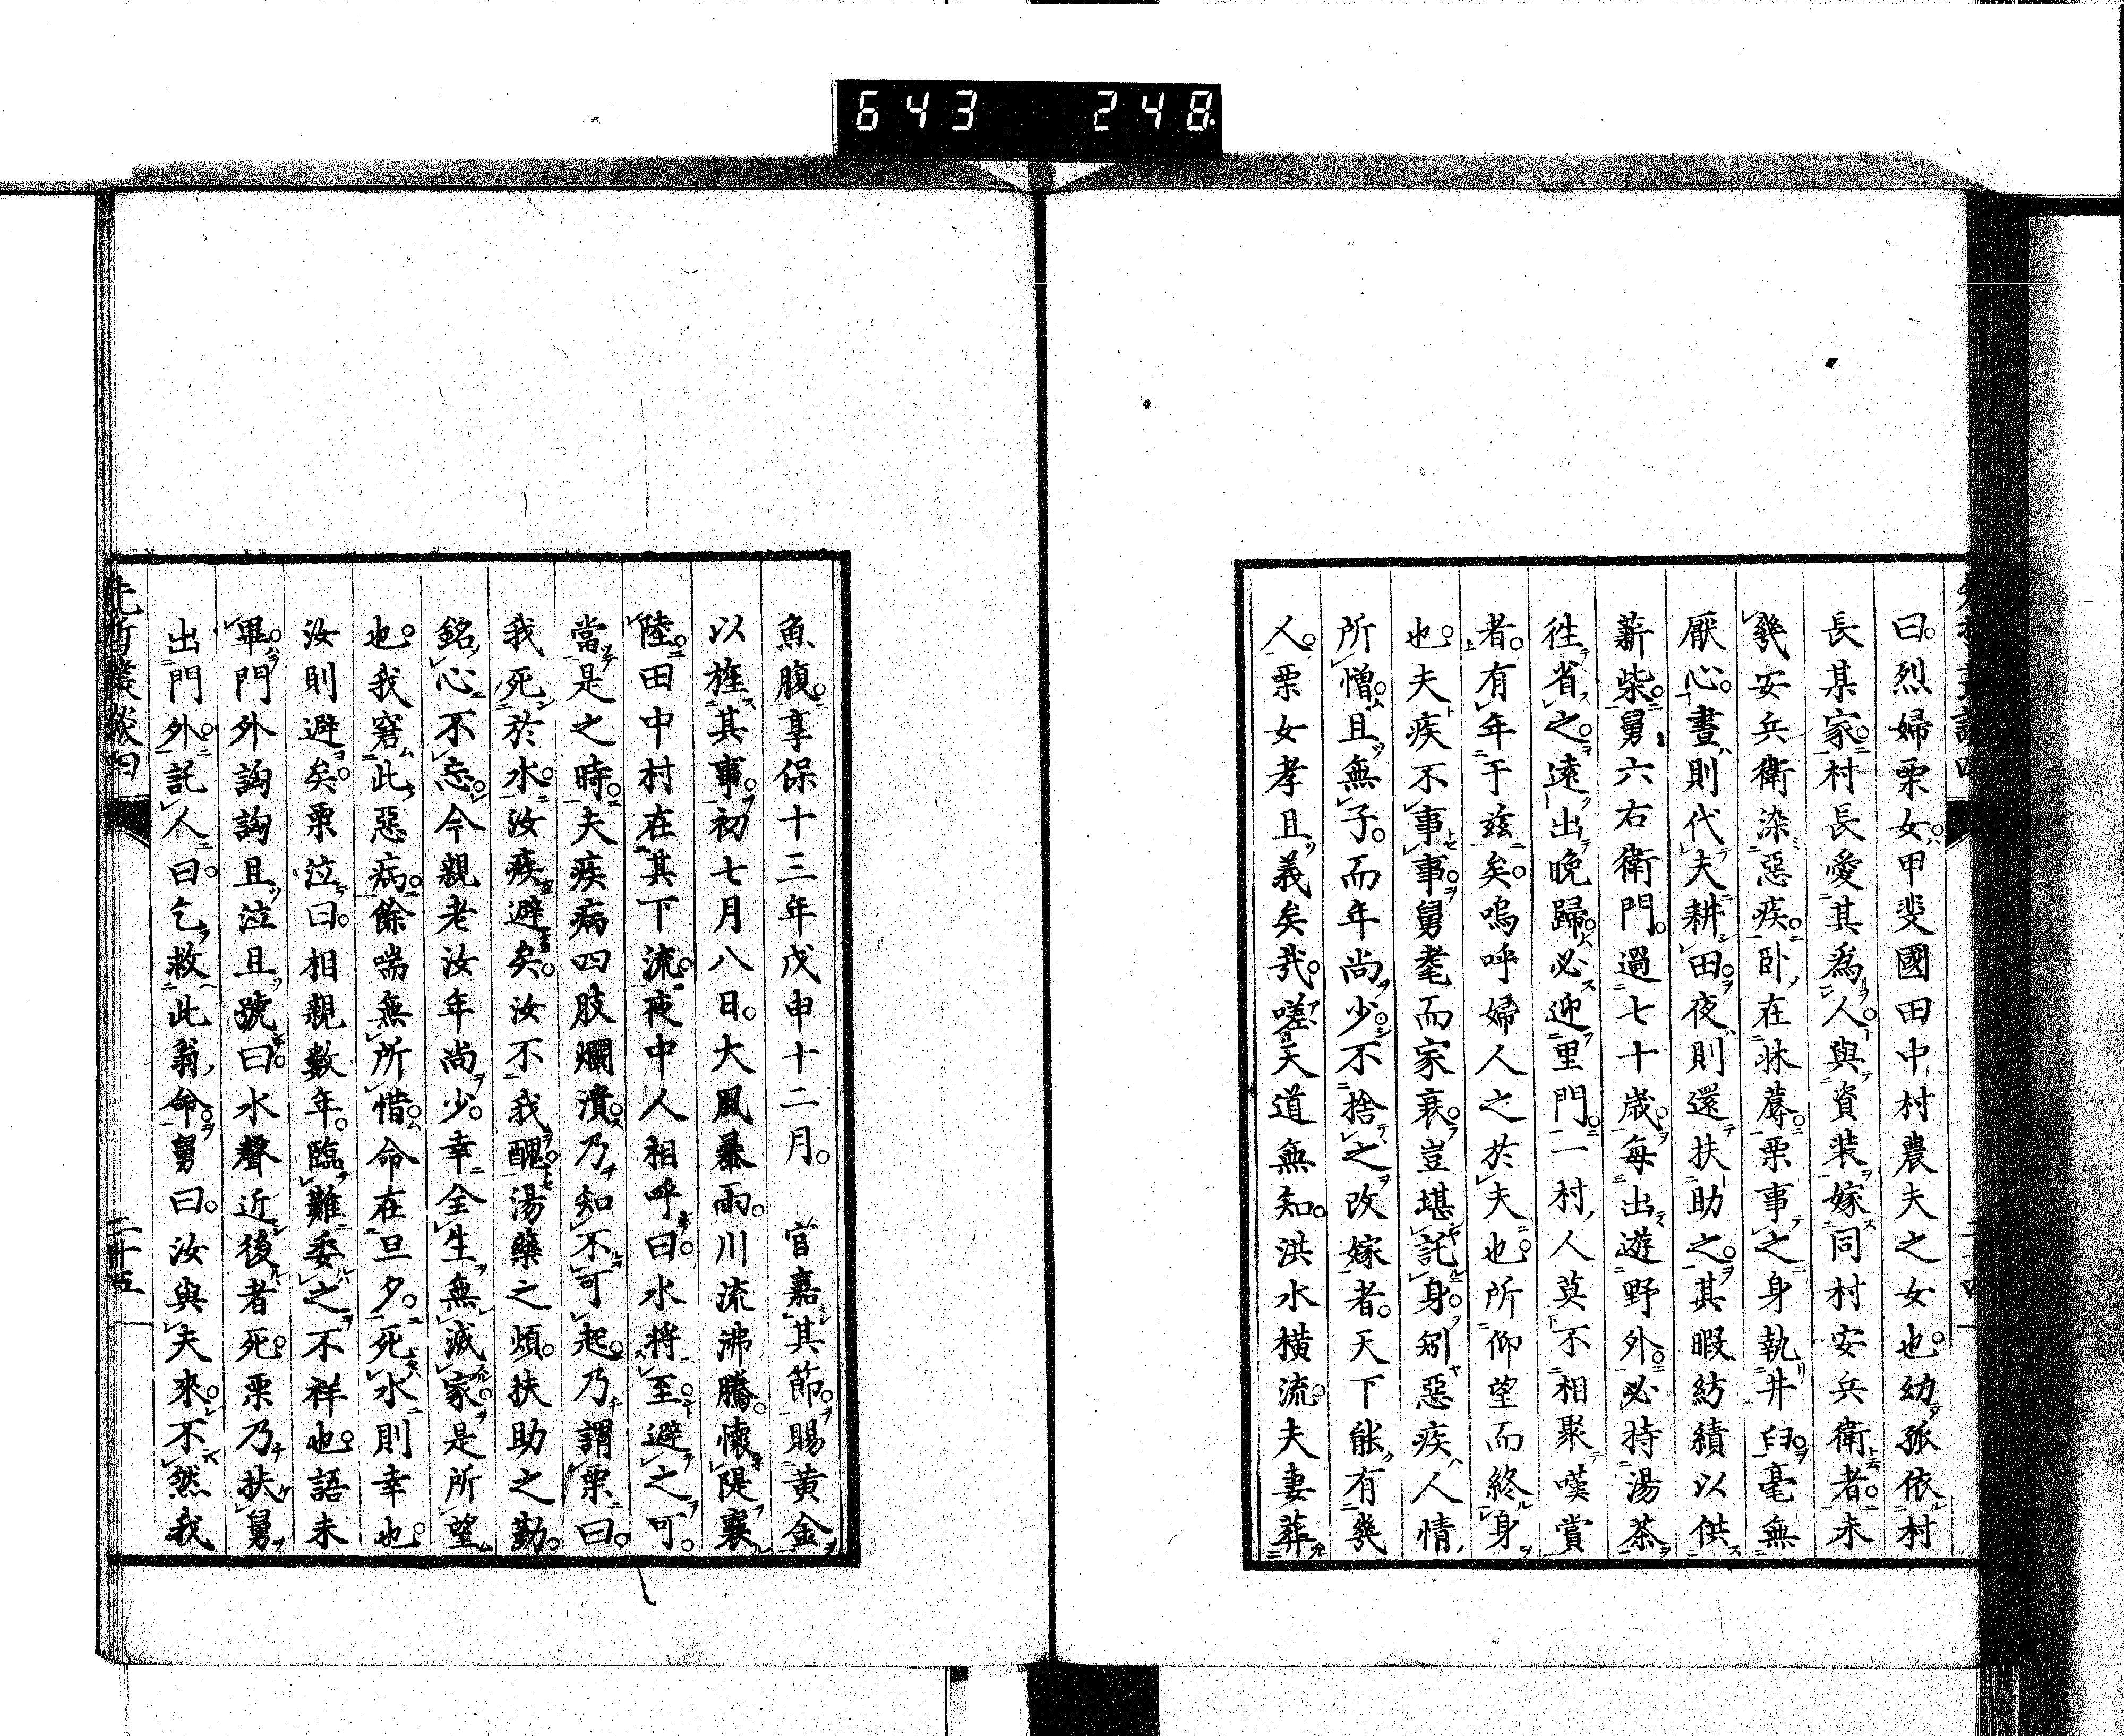 643 248
曰。烈婦栗女。甲斐國田中村農夫之女也。幼孤依村
長某家。村長愛其為人。與資装嫁同村安兵衛者。未
幾安兵衛染惡疾。卧在牀蓐。栗事之身執井臼。毫無
厭心。晝則代夫耕田。夜則還扶助之。其暇紡績以供
薪柴。舅六右衛門。過七十歳。毎出遊野外。必持湯茶
徃省之。遠出晩歸。必迎里門。二村人莫不相聚嘆賞
者。有年于茲矣。嗚呼婦人之於夫也。所仰望而終身
也。夫疾不事事。舅耄而家衰。豈堪託身。矧惡疾人情
所憎。且無子。而年尚少。不捨之改嫁者。天下能有幾
人。栗女孝且義矣哉。嗟天道無知。洪水横流。夫妻葬
魚腹。享保十三年戊申十二月。 官嘉其節。賜黄金
以旌其事。初七月八日。大風暴雨。川流沸騰。懷隄襄
陸。田中村在其下流。夜中人相呼曰。水將至。避之可。
當是之時。夫疾病四肢爛潰。乃知不可起。乃謂栗曰。
我死於水。汝疾避矣。汝不我醜。湯藥之煩。扶助之勤。
銘心不忘。今親老汝年尚少。幸全生無滅家。是所望
也。我窘此惡病。餘喘無所惜。命在旦夕。死水則幸也。
汝則避矣。栗泣曰。相親數年。臨難委之不祥也。語未
畢。門外詾詾且泣且號曰。水聲近後者死。栗乃扶舅
出門外。託人曰。乞救此翁命。舅曰。汝與夫來。不然我
先哲叢談四
二十五